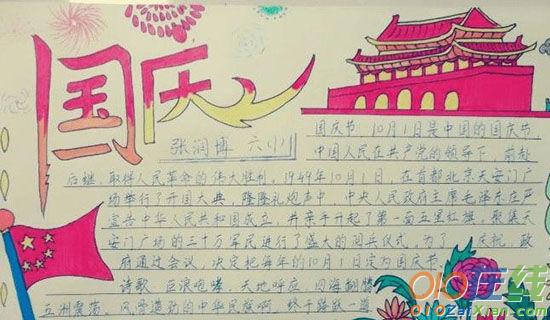 国庆
张润博 六(1)
国庆节 10月1日是中国的国庆节,
中国人民在共产党的领导下,前赴
后继,取得人民革命的伟大胜利,1949年10月1日,在首都北京天安门广
场举行了开国大典,隆隆礼炮声中,中央人民政府主席毛泽东庄严
宣告中华人民共和国成立,并亲手升起了第一面五星红旗,聚集天
安门广场的三十万军民进行了盛大的阅兵仪式,为了 庆祝,政
府通过会议 决定把每年的10月1日定为国庆节。
诗歌 巨浪咆哮,天地呼应 四海翻腾
五洲震荡,风雷激励的中华民族啊 终于踏
在线
ZaiXian.com